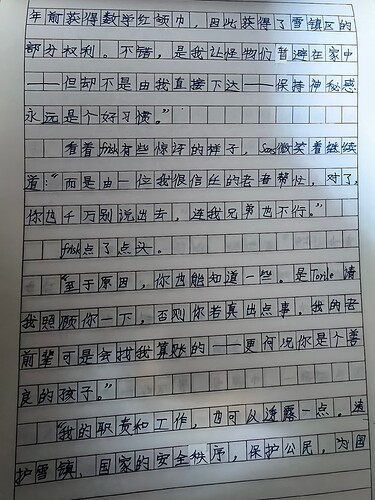 年前获得数学红领巾，因此获得了雪镇区的
部分权利。不错，是我让怪物们皆避在家中
——但却不是由我直接下达——保持神秘感
永远是个好习惯。”
看着frisk有些惊讶的样子，Sans微笑着继续
道：“而是由一位我很信任的老者帮忙，对了，
你也千万别说出去，连我兄弟也不行。”
frisk点了点头。
“至于原因，你也能知道一些。是Toriel请
我照顾你一下，否则你若真出点事，我的老
前辈可是会找我算账的——更何况你是个善
良的孩子。”
“我的职责和工作，也可以透露一点。
护雪镇、国家的安全秩序，保护公民，为国